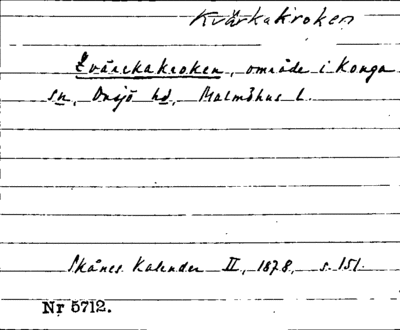 Kvärkakroken
Kvärkakroken, område i Konga
sn, Onsjö hd, Malmöhus L.
Skånes Kalender II, 1878, s. 151.
Nr 5712.